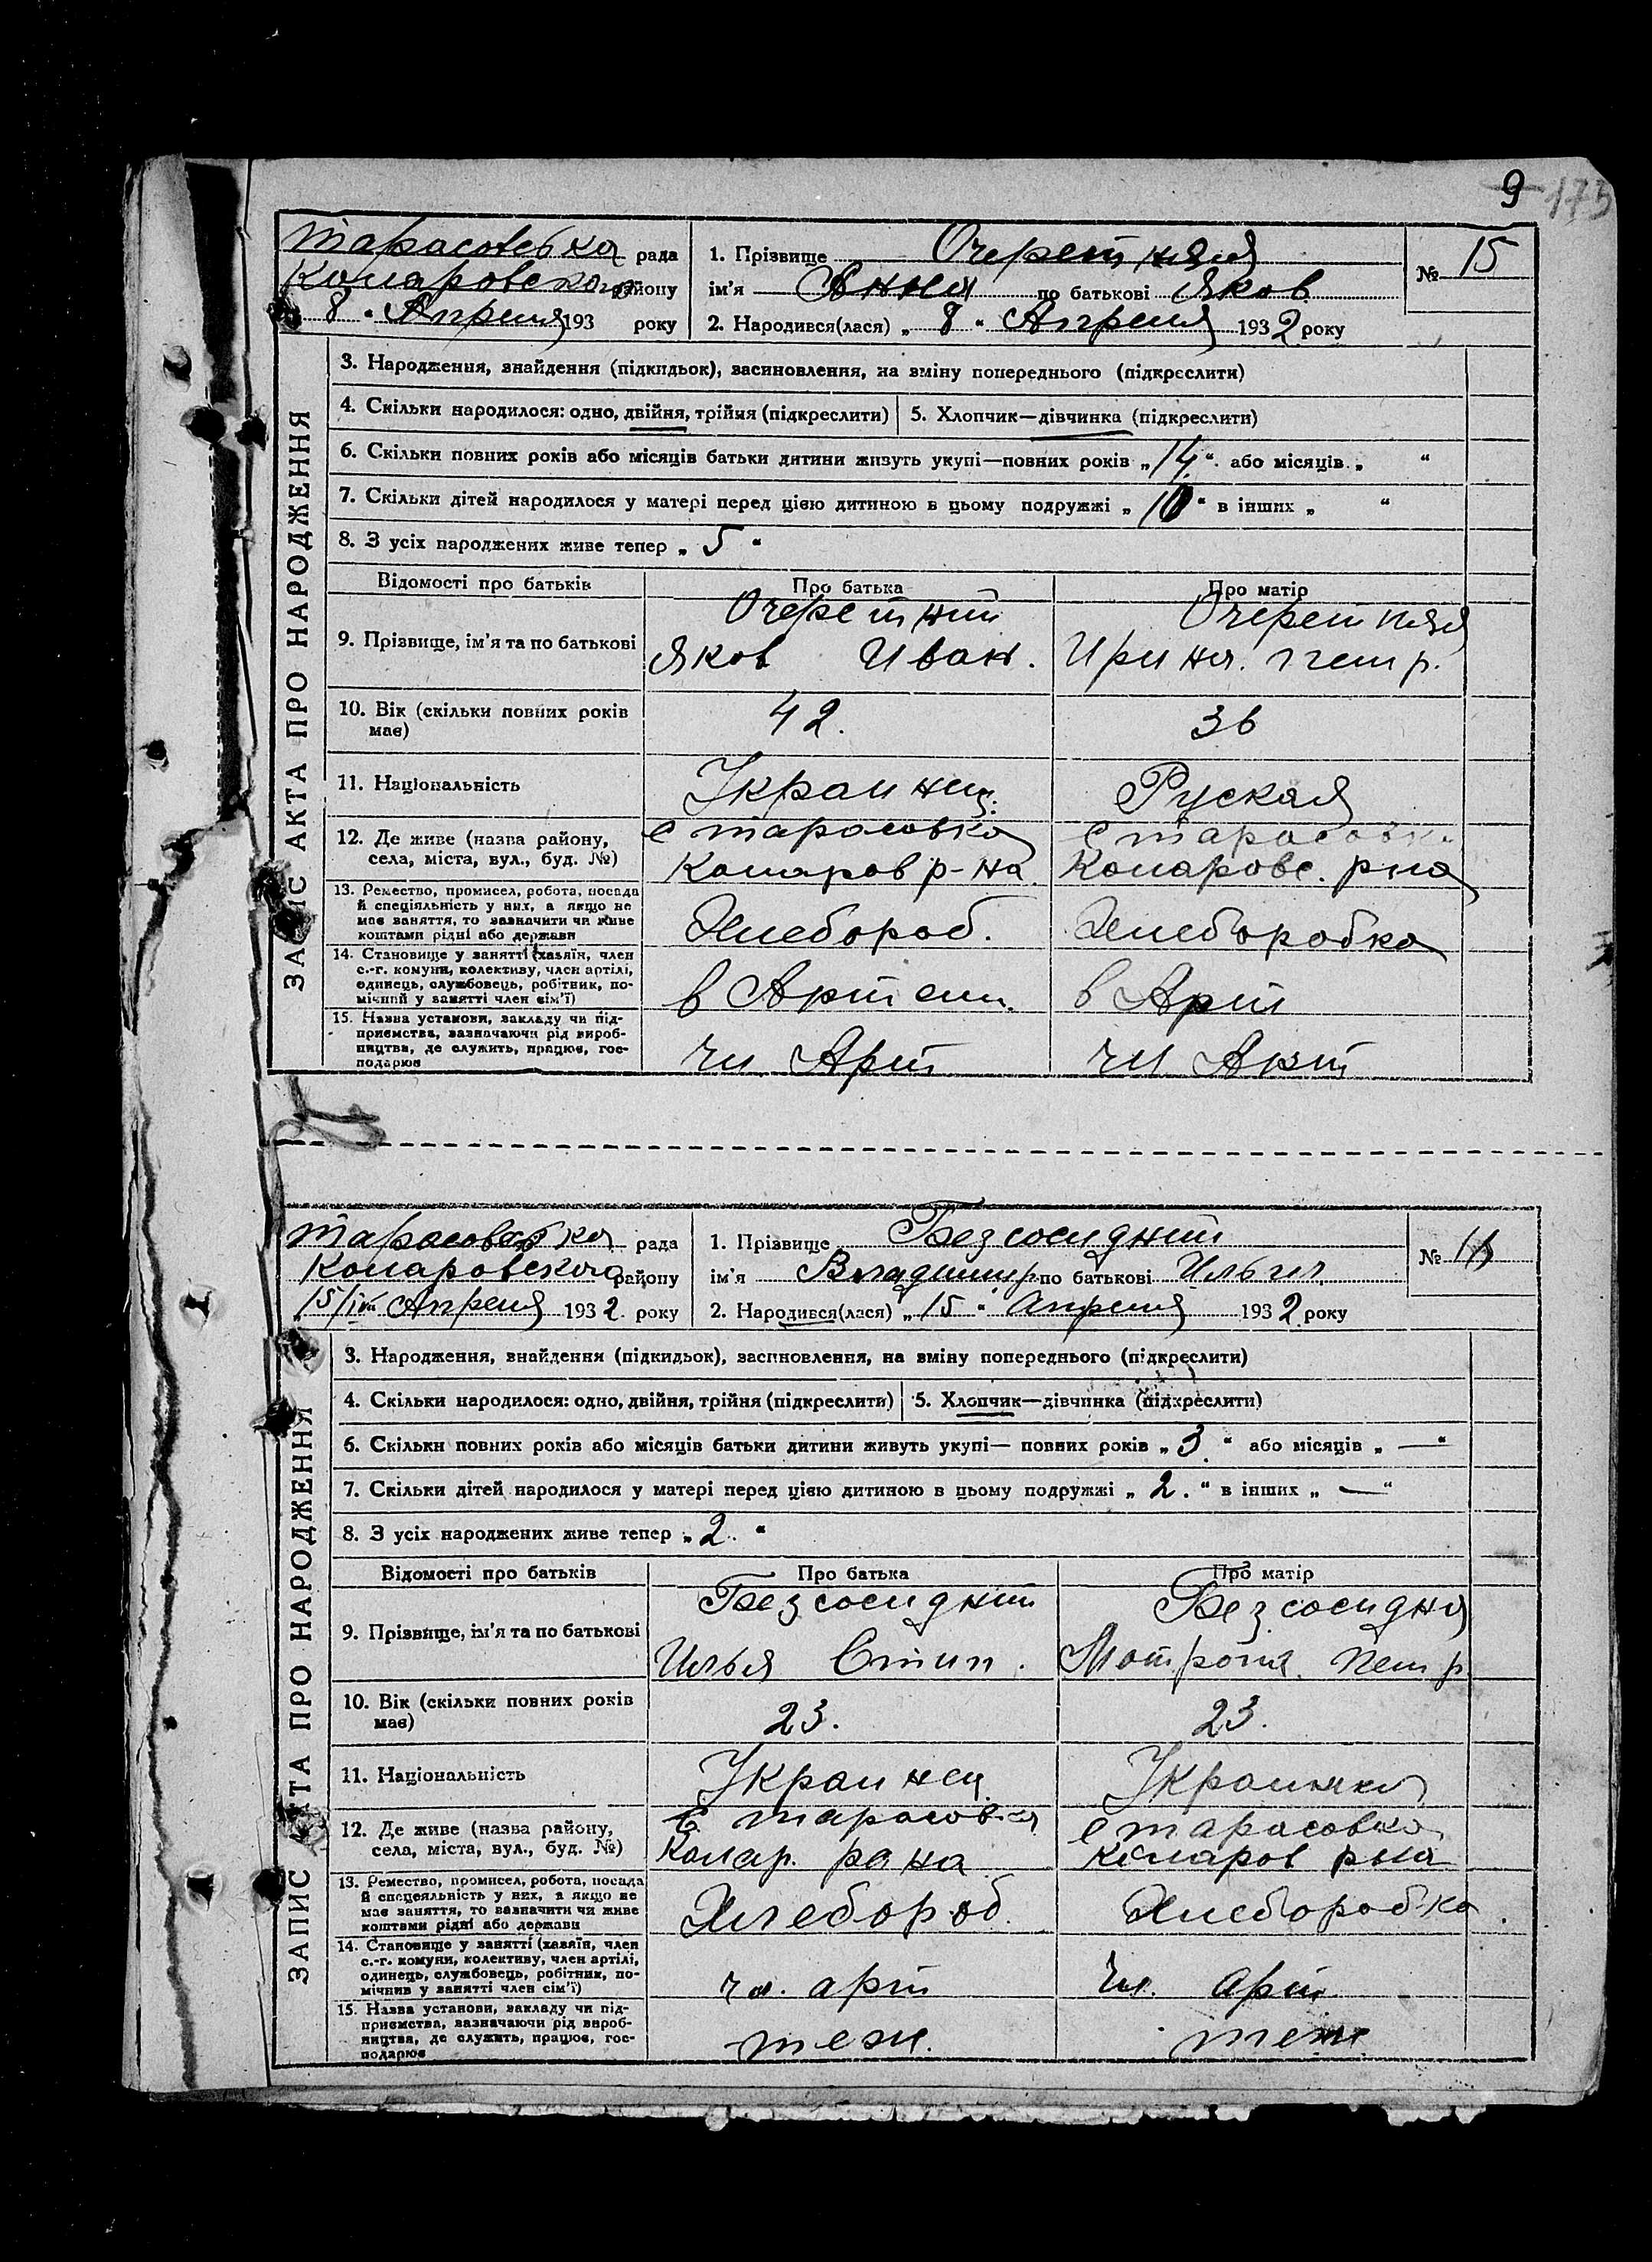 9 175
Тарасовська рада
Комаровского району
„ 8 “ Апреля 193 року
1. Прізвище Очеретняя
ім'я Анна по батькові Яков
2. Народився(лася) „ 8 “ Апреля 1932 року
№ 15
ЗАПИС АКТА ПРО НАРОДЖЕННЯ
3. Народження, знайдення (підкидьок), засиновлення, на зміну попереднього (підкреслити)
4. Скільки народилося: одно, двійня, трійня (підкреслити) 5. Хлопчик—дівчинка (підкреслити)
6. Скільки повних років або місяців батьки дитини живуть укупі—повних років „ 14 “ або місяців „ “
7. Скільки дітей народилося у матері перед цією дитиною в цьому подружжі „ 10 “ в інших „ “
8. З усіх народжених живе тепер „ 5 “
Відомості про батьків Про батька Про матір
9. Прізвище, ім'я та по батькові
Очеретний
Яков Иван.
Очеретняя
Ирина. Петр.
10. Вік (скільки повних років має)
42. 36
11. Національність
Украинец. Руская
12. Де живе (назва району, села, міста, вул., буд. №)
с тарасовка
Комаров р-на
с тарасовка
Комаровс. рна
13. Ремество, промисел, робота, посада
й спеціяльність у них, а якщо не
має заняття, то зазначити чи живе
коштами рідні або держави
Хлебороб. Хлеборобка
14. Становище у занятті (хазяїн, член
с.-г. комуни, колективу, член артілі,
одинець, службовець, робітник, по-
мічний у занятті член сім'ї)
в Артели. в Арт
15. Назва установи, закладу чи під-
приємства, зазначаючи рід вироб-
ництва, де служить, працює, гос-
подарює
чл Арт чл Арт
рада
Комаровского району
Апреля 1932 року
1. Прізвище Безсосидний
ім'я Владимир по батькові Ильич
2. Народився(лася) „ 15 “ апреля 1932 року
№
ЗАПИС АКТА ПРО НАРОДЖЕННЯ
3. Народження, знайдення (підкидьок), засиновлення, на зміну попереднього (підкреслити)
4. Скільки народилося: одно, двійня, трійня (підкреслити) 5. Хлопчик—дівчинка (підкреслити)
6. Скільки повних років або місяців батьки дитини живуть укупі— повних років „ 3 “ або місяців „ — “
7. Скільки дітей народилося у матері перед цією дитиною в цьому подружжі „ 2. “ в інших „ — “
8. З усіх народжених живе тепер „ 2. “
Відомості про батьків Про батька Про матір
9. Прізвище, ім'я та по батькові
Безсосидний
Илья Стип.
Безсосидня
Мотрона. Петр
10. Вік (скільки повних років має)
23. 23.
11. Національність
Украинец Украинка
12. Де живе (назва району, села, міста, вул., буд. №)
С тарасовка
Комар. рана
с тарасовка
Комаров рна
13. Ремество, промисел, робота, посада
й спецеяльність у них, а якщо не
має заняття, то зазначити чи живе
коштами рідні або держави
Хлебороб Хлеборобка
14. Становище у занятті (хазяїн, член
с.-г. комуни, колективу, член артілі,
одинець, службовець, робітник, по-
мічнив у занятті член сім'ї)
чл. арт чл. арт.
15. Назва установи, закладу чи під-
приємства, зазначаючи рід вироб-
ництва, де служить, працює, гос-
подарює
теж. теж